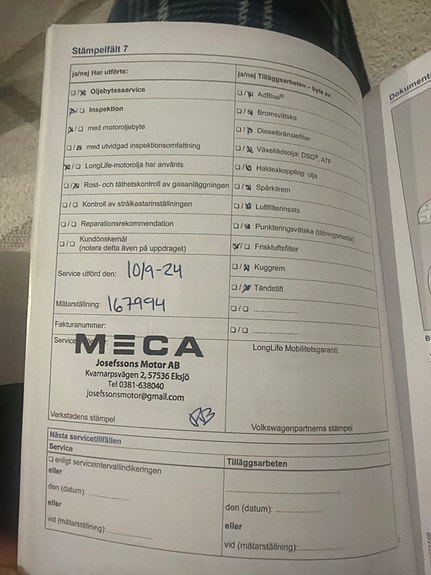 Stämpelfält 7
ja/nej Har utförts:
☐/☒ Oljebytesservice
☒/☐ Inspektion
☒/☐ med motoroljebyte
☐/☒ med utvidgad inspektionsomfattning
☒/☐ LongLife-motorolja har använts
☐/☒ Rost- och täthetskontroll av gasanläggningen
☐/☐ Kontroll av strålkastarinställningen
☐/☐ Reparationsrekommendation
☐/☐ Kundönskemål
(notera detta även på uppdraget)
Service utförd den: 10/9-24
Mätarställning: 167994
Fakturanummer:
MECA
Josefssons Motor AB
Kvarnarpsvägen 2, 57536 Eksjö
Tel 0381-638040
josefssonsmotor@gmail.com
Verkstadens stämpel
ja/nej Tilläggsarbeten – byte av:
☐/☒ AdBlue®
☐/☒ Bromsvätska
☐/☒ Dieselbränslefilter
☐/☒ Växellådsolja: DSG®, ATF
☐/☒ Haldexkoppling: olja
☐/☒ Spårkitrem
☐/☒ Luftfilterinsats
☐/☒ Punkteringsvätska (tätningsmedel)
☒/☐ Friskluftsfilter
☐/☒ Kuggrem
☐/☒ Tändstift
☐/☐ ....................
☐/☐ ....................
LongLife Mobilitetsgaranti:
Volkswagenpartnerns stämpel
Nästa servicetillfällen
Service
☐ enligt serviceintervallindikeringen
eller
den (datum) ....................
eller
vid (mätarställning): ..........
Tilläggsarbeten
........................................
den (datum): ....................
eller
vid (mätarställning): ..........